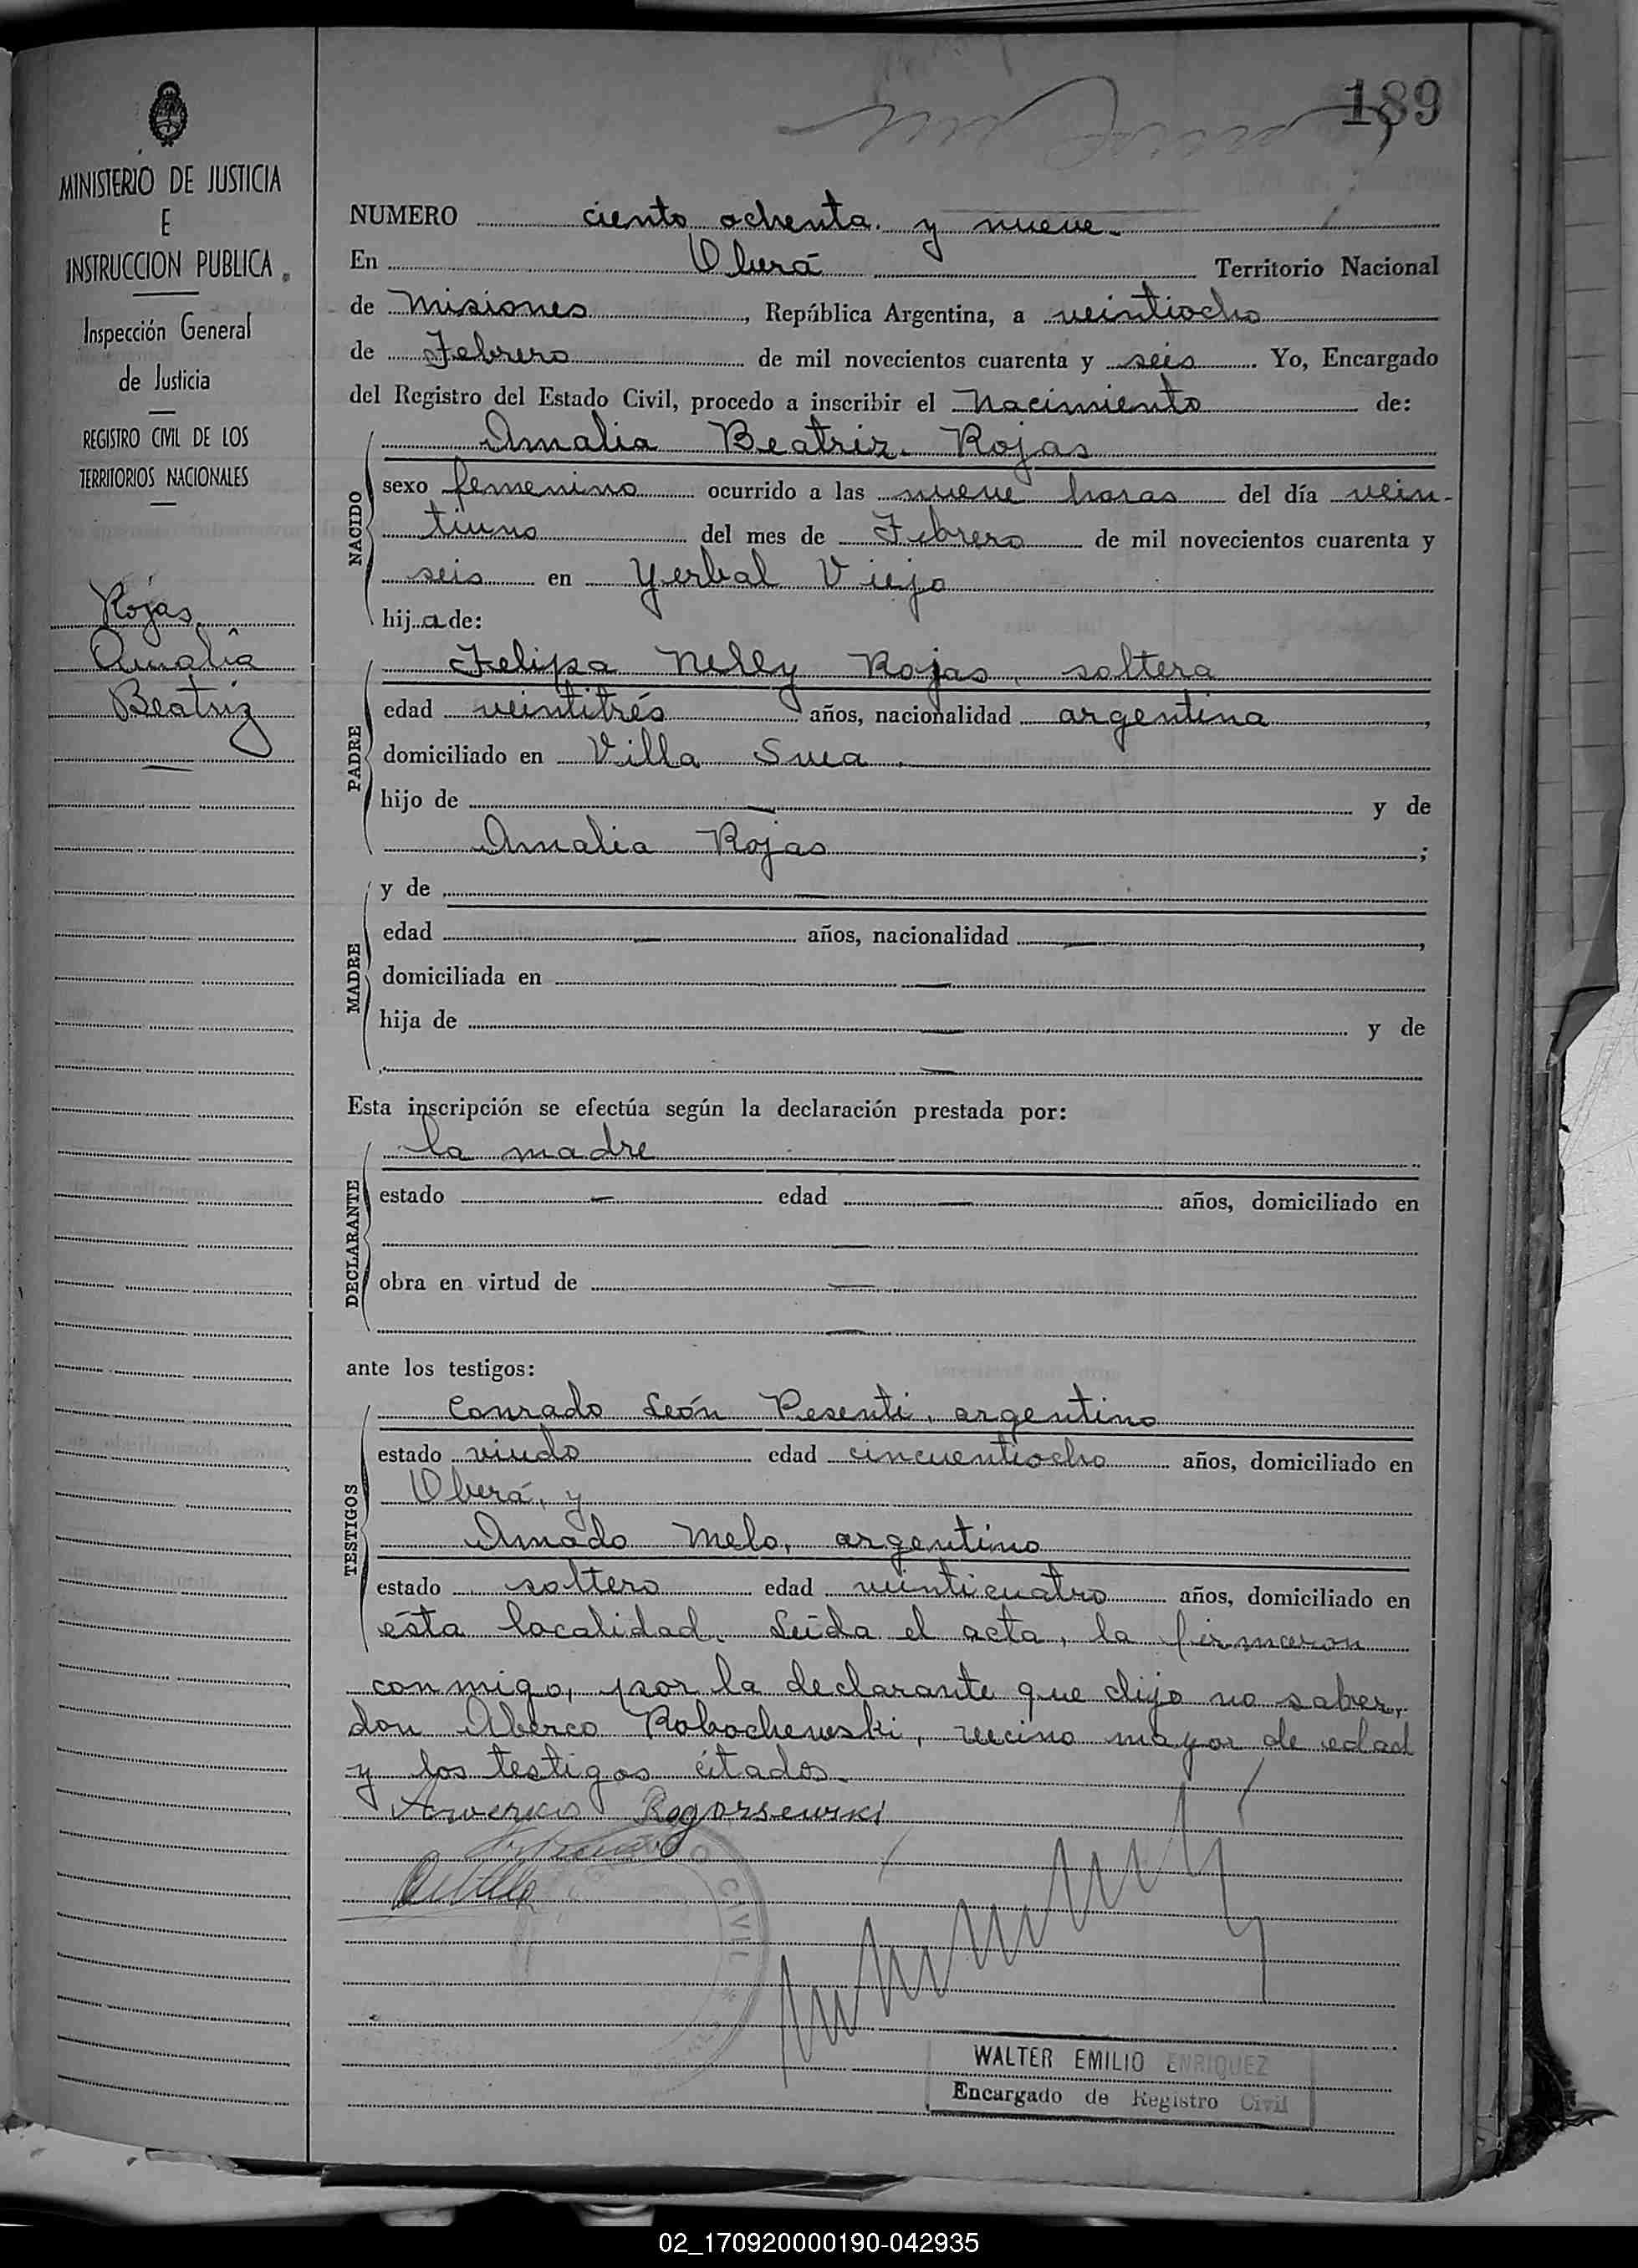 189
MINISTERIO DE JUSTICIA
E
INSTRUCCION PUBLICA
Inspección General
de Justicia
REGISTRO CIVIL DE LOS
TERRITORIOS NACIONALES
Rojas
Amalia
Beatriz
NUMERO ciento ochenta y nueve
En Oberá Territorio Nacional
de Misiones, República Argentina, a veintiocho
de Febrero de mil novecientos cuarenta y seis. Yo, Encargado
del Registro del Estado Civil, procedo a inscribir el Nacimiento de:
NACIDO
Amalia Beatriz Rojas
sexo femenino ocurrido a las nueve horas del día vein-
tiuno del mes de Febrero de mil novecientos cuarenta y
seis en Yerbal Viejo
hija de:
PADRE
Felipa Nelly Rojas, soltera
edad veintitrés años, nacionalidad argentina,
domiciliado en Villa Svea.
hijo de — y de
Amalia Rojas;
MADRE
y de —
edad — años, nacionalidad —,
domiciliada en —
hija de — y de
—
Esta inscripción se efectúa según la declaración prestada por:
DECLARANTE
la madre
estado — edad — años, domiciliado en
—
obra en virtud de —
—
ante los testigos:
TESTIGOS
Conrado León Pesenti, argentino
estado viudo edad cincuentiocho años, domiciliado en
Oberá, y
Amado Melo, argentino
estado soltero edad veinticuatro años, domiciliado en
ésta localidad. Leída el acta, la firmaron
conmigo, por la declarante que dijo no saber,
don Aberco Robochewski, vecino mayor de edad
y los testigos citados.
Rogorsewski
CIVIL
WALTER EMILIO ENRIQUEZ
Encargado de Registro Civil
02_170920000190-042935